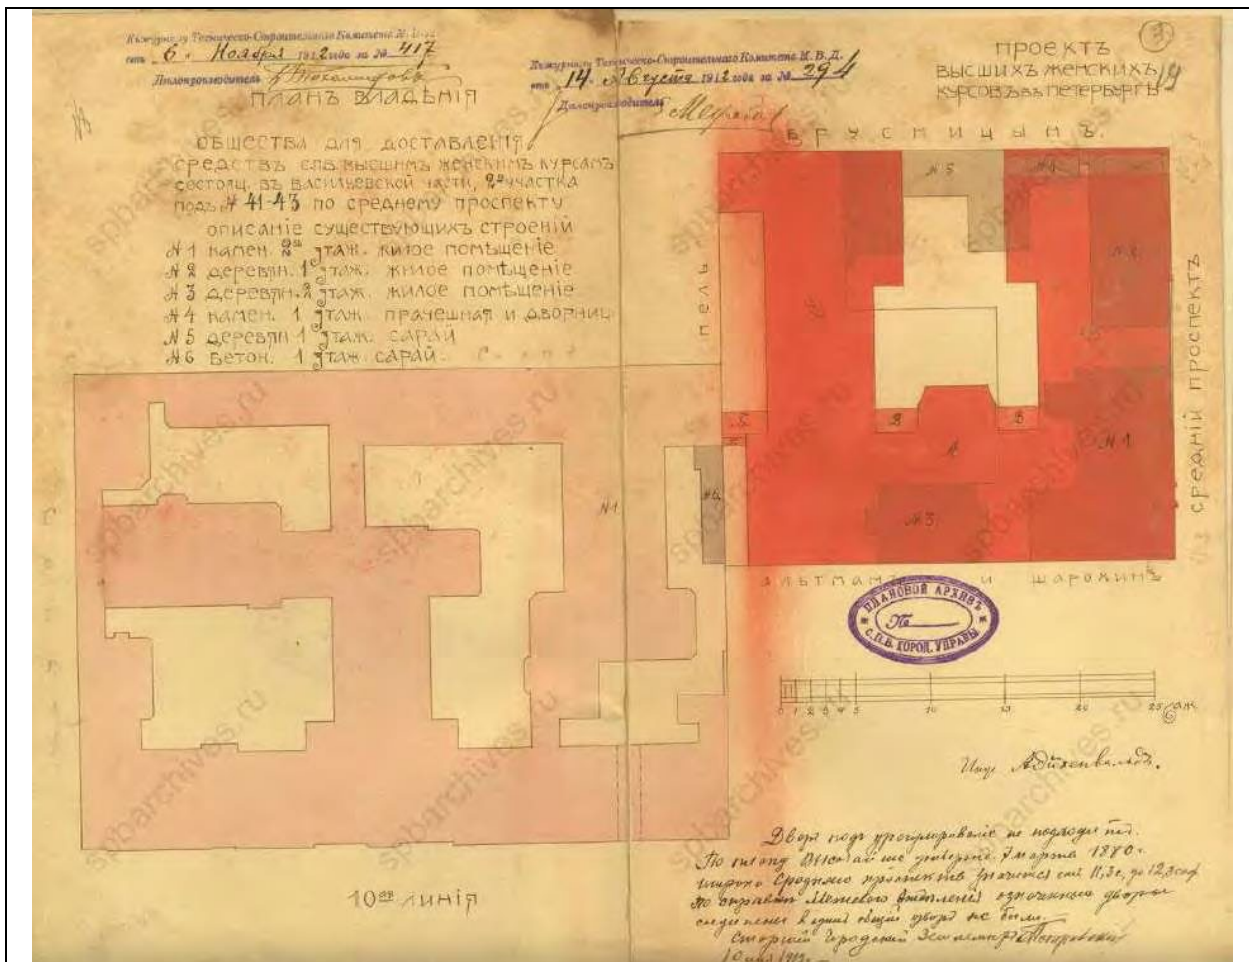 Къ журналу Техническо-Строительнаго Комитета М. В. Д.
отъ „6“ Ноября 1912 года за № 417
Дѣлопроизводитель
Къ журналу Техническо-Строительнаго Комитета М. В. Д.
отъ „14“ Августа 1912 года за № 294
Дѣлопроизводитель
ПРОЕКТЪ
ВЫСШИХЪ ЖЕНСКИХЪ
КУРСОВЪ ВЪ ПЕТЕРБУРГѢ
3
19
ПЛАНЪ ВЛАДѢНІЯ
ОБЩЕСТВА ДЛЯ ДОСТАВЛЕНІЯ
СРЕДСТВЪ СПБ ВЫСШИМЪ ЖЕНСКИМЪ КУРСАМЪ
СОСТОЯЩ. ВЪ ВАСИЛЬЕВСКОЙ ЧАСТИ, 2го УЧАСТКА
ПОДЪ № 41-43 ПО СРЕДНЕМУ ПРОСПЕКТУ
ОПИСАНІЕ СУЩЕСТВУЮЩИХЪ СТРОЕНІЙ
№ 1 КАМЕН. 2хъ ЭТАЖ. ЖИЛОЕ ПОМѢЩЕНІЕ
№ 2 ДЕРЕВЯН. 1 ЭТАЖ. ЖИЛОЕ ПОМѢЩЕНІЕ
№ 3 ДЕРЕВЯН. 2 ЭТАЖ. ЖИЛОЕ ПОМѢЩЕНІЕ
№ 4 КАМЕН. 1 ЭТАЖ. ПРАЧЕШНАЯ И ДВОРНИЦ.
№ 5 ДЕРЕВЯН 1 ЭТАЖ. САРАЙ
№ 6 БЕТОН. 1 ЭТАЖ. САРАЙ.
БРУСНИЦЫНЪ.
№ 5
№ 4
№ 2
ПЕЛЬ
СРЕДНІЙ ПРОСПЕКТЪ
Б
В
В
А
№ 1
№ 3
№ 1
№ 6
АЛЬТМАНЪ И ШАРОХИНЪ
ПЛАНОВОЙ АРХИВЪ
№
С.П.Б. ГОРОД. УПРАВЫ
0 1 2 3 4 5 10 15 20 25 саж
10ая ЛИНІЯ
Дворъ подъ урегулированіе не подходитъ.
По плану Высочайше утвержд. 7 марта 1880 г.
ширина Средняго проспекта значится отъ 11,3 с. до 12,3 саж
По справкѣ Межевого отдѣленія означенные дворы
соединены въ одинъ общій дворъ не были.
Старшій Городской Землемѣръ
10 мая 1912 г.
spbarchives.ru